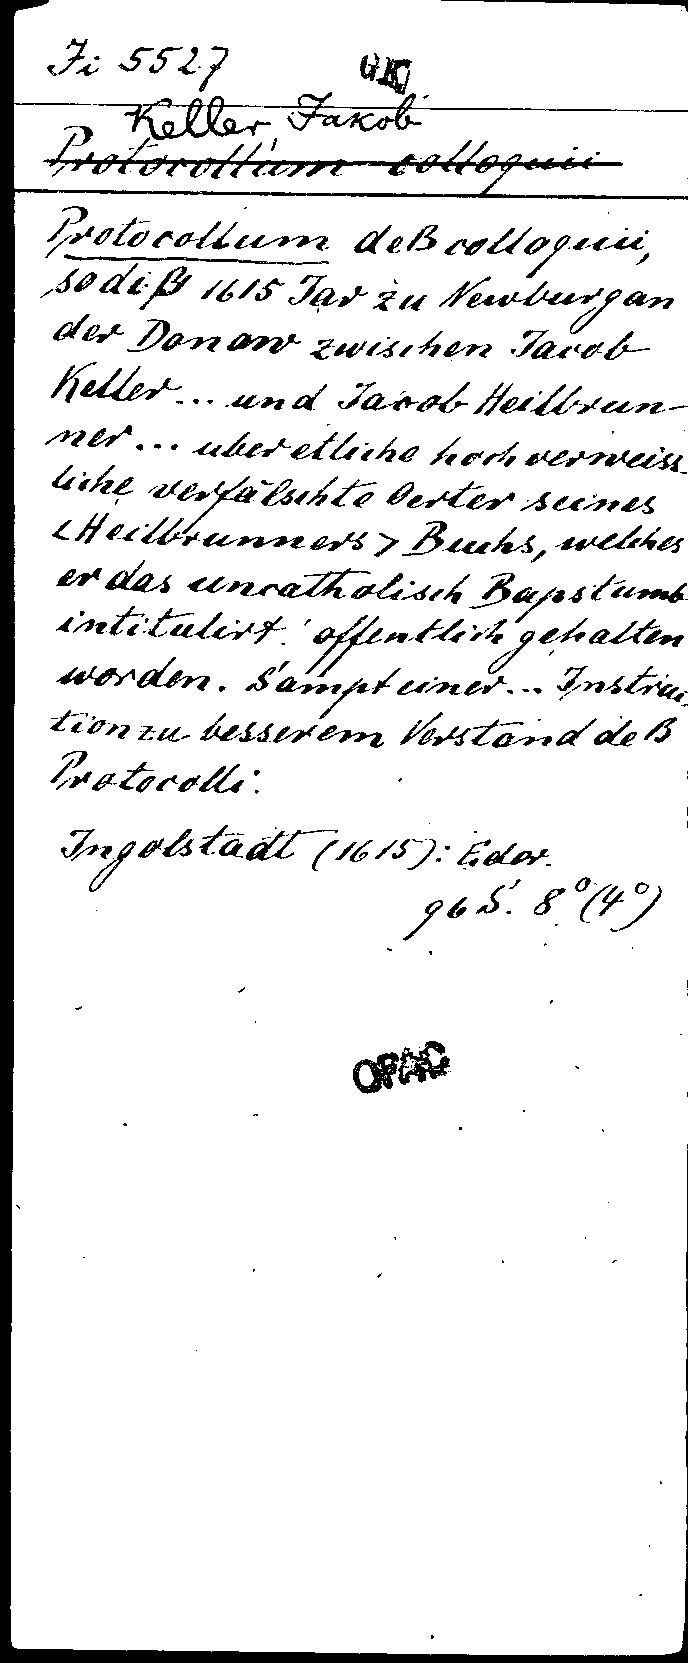 Ji 5527 GK
Keller, Jakob
Protocollum colloquii
Protocollum deß colloquii,
so diß 1615 Jar zu Newburg an
der Donaw zwischen Jacob
Keller... und Jacob Heilbrun-
ner... uber etliche hochverweiss-
liche verfälschte Oerter seines
<Heilbrunners> Buchs, welches
er das uncatholisch Bapstumb
intitulirt. offentlich gehalten
worden. Sampt einer... Instruc-
tion zu besserem Verstand deß
Protocolli.
Ingolstadt (1615): Eder.
96 S. 8° (4°)
OPAC